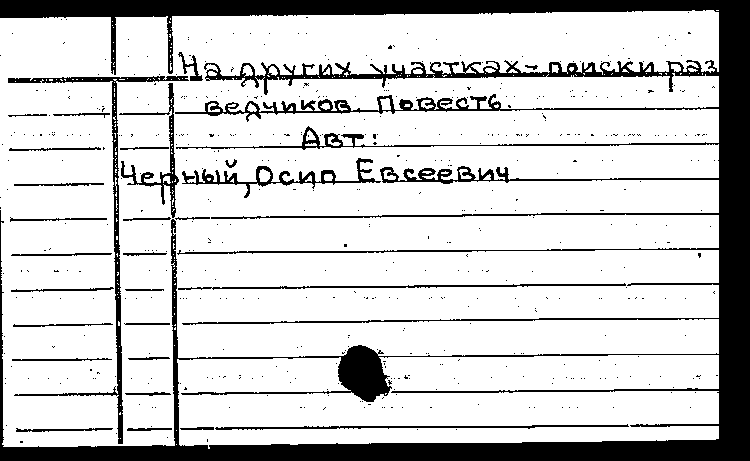 На других участках - поиски раз
ведчиков. Повесть.
Авт.:
Черный, Осип Евсеевич